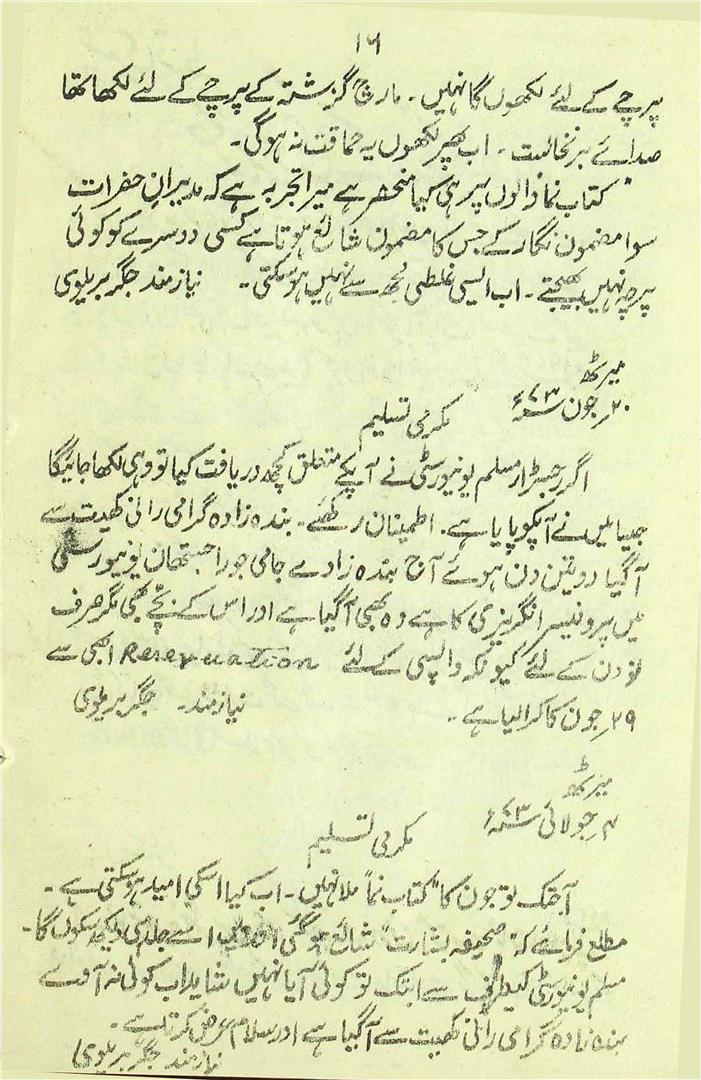 ۱۶
پرچے کے لئے لکھوں گا نہیں۔ مارچ گزشتہ کے پرچے کے لئے لکھا تھا
صدائے برنخاست۔ اب پھر لکھوں یہ حماقت نہ ہوگی۔
کتاب نما والوں پر ہی کیا منحصر ہے میرا تجربہ ہے کہ مدیران حضرات
سوا مضمون نگار کے جس کا مضمون شائع ہوتا ہے کسی دوسرے کو کوئی
پرچہ نہیں بھیجتے۔ اب ایسی غلطی مجھ سے نہیں ہو سکتی۔ نیازمند جگر بریلوی
میرٹھ
۲۰؍جون ۷۳ء
مکرمی تسلیم
اگر رجسٹرار مسلم یونیورسٹی نے آپکے متعلق کچھ دریافت کیا تو وہی لکھا جائیگا
جیسا میں نے آپکو پایا ہے۔ اطمینان رکھئے۔ بندہ زادہ گرامی رانی کھیت سے
آگیا دو تین دن ہوئے آج بندہ زادے جامی جو راجستھان یونیورسٹی
میں پروفیسر انگریزی کا ہے وہ بھی آگیا ہے اور اس کے بچّے بھی مگر صرف
نو دن کے لئے کیونکہ واپسی کے لئے Reservation ابھی سے
۲۹؍جون کا کرا لیا ہے۔ نیازمند۔ جگر بریلوی
میرٹھ
۴؍جولائی ۷۳ء
مکرمی تسلیم
آجتک تو جون کا "کتاب نما" ملا نہیں۔ اب کیا اسکی امید ہو سکتی ہے۔
مطلع فرمائے کہ "صحیفہ بشارت" شائع ہو گئی اور میں اسے جلد ہی دیکھ سکوں گا۔
مسلم یونیورسٹی کیطرف سے ابتک تو کوئی آیا نہیں شاید اب کوئی نہ آوے
بندہ زادہ گرامی رانی کھیت سے آگیا ہے اور سلام عرض کرتا ہے۔
نیازمند جگر بریلوی